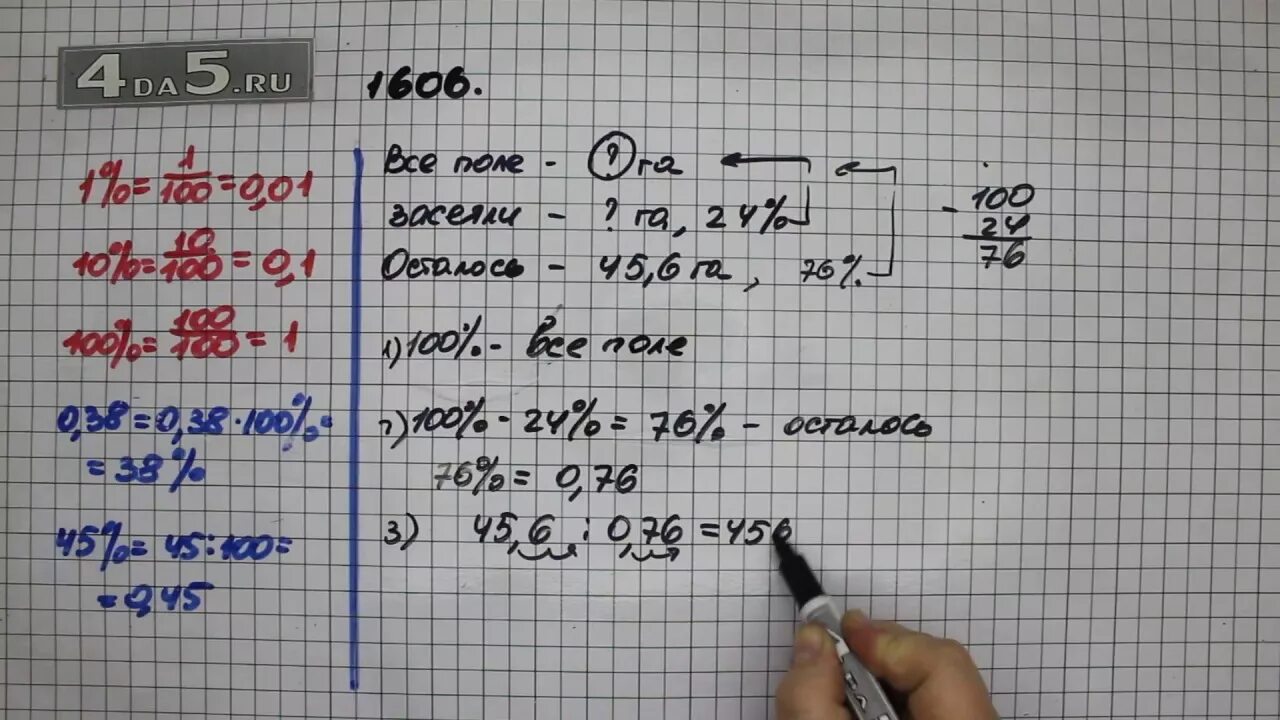 4DA5.RU
1606.
1% = 1/100 = 0,01
10% = 10/100 = 0,1
100% = 100/100 = 1
0,38 = 0,38 · 100% =
= 38%
45% = 45 : 100 =
= 0,45
Все поле - ? га
засеяли - ? га, 24%
Осталось - 45,6 га, 76%
- 100
24
76
1) 100% - все поле
2) 100% - 24% = 76% - осталось
76% = 0,76
3) 45,6 : 0,76 = 456